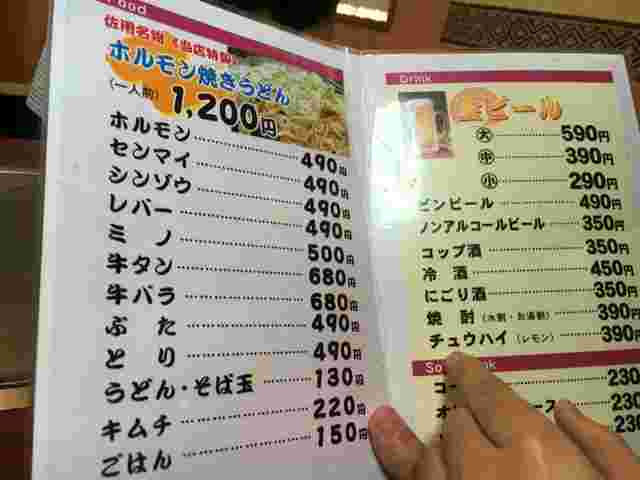 Food
佐用名物《当店特製》
ホルモン焼きうどん
(一人前) 1,200円
ホルモン 490円
センマイ 490円
シンゾウ 490円
レバー 490円
ミノ 500円
牛タン 680円
牛バラ 680円
ぶた 490円
とり 490円
うどん・そば玉 130円
キムチ 220円
ごはん 150円
Drink
生ビール
大 590円
中 390円
小 290円
ビンビール 490円
ノンアルコールビール 350円
コップ酒 350円
冷酒 450円
にごり酒 350円
焼酎(水割・お湯割) 390円
チュウハイ(レモン) 390円
230
230
230